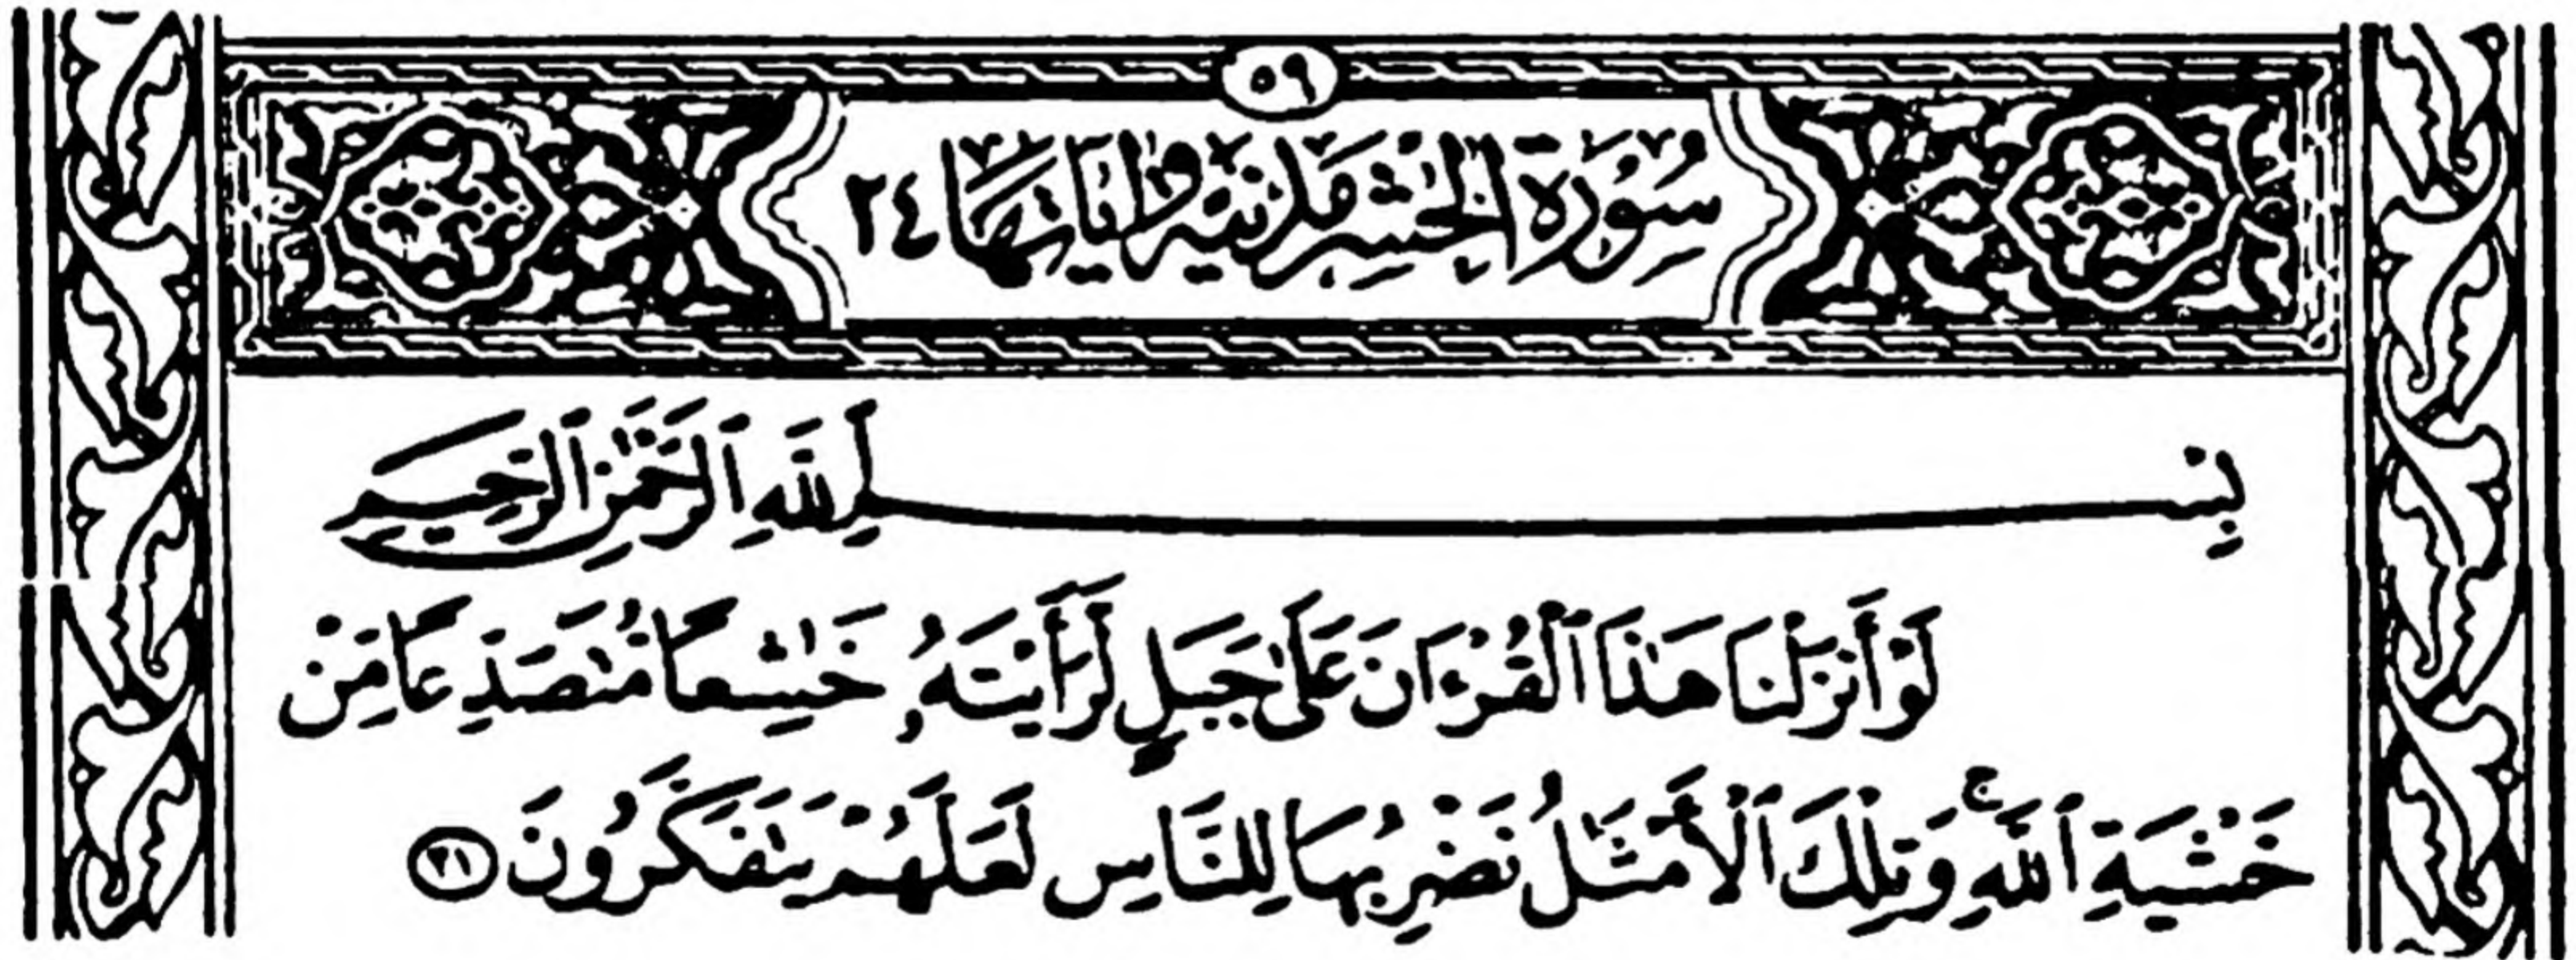 ٥٩
سُورَةُ الْحَشْرِ مَدَنِيَّة وَآيَاتُهَا ٢٤
بِسْمِ ٱللَّهِ ٱلرَّحْمَٰنِ ٱلرَّحِيمِ
لَوْ أَنزَلْنَا هَٰذَا ٱلْقُرْءَانَ عَلَىٰ جَبَلٍ لَّرَأَيْتَهُۥ خَٰشِعًا مُّتَصَدِّعًا مِّنْ
خَشْيَةِ ٱللَّهِ ۚ وَتِلْكَ ٱلْأَمْثَٰلُ نَضْرِبُهَا لِلنَّاسِ لَعَلَّهُمْ يَتَفَكَّرُونَ ٢١